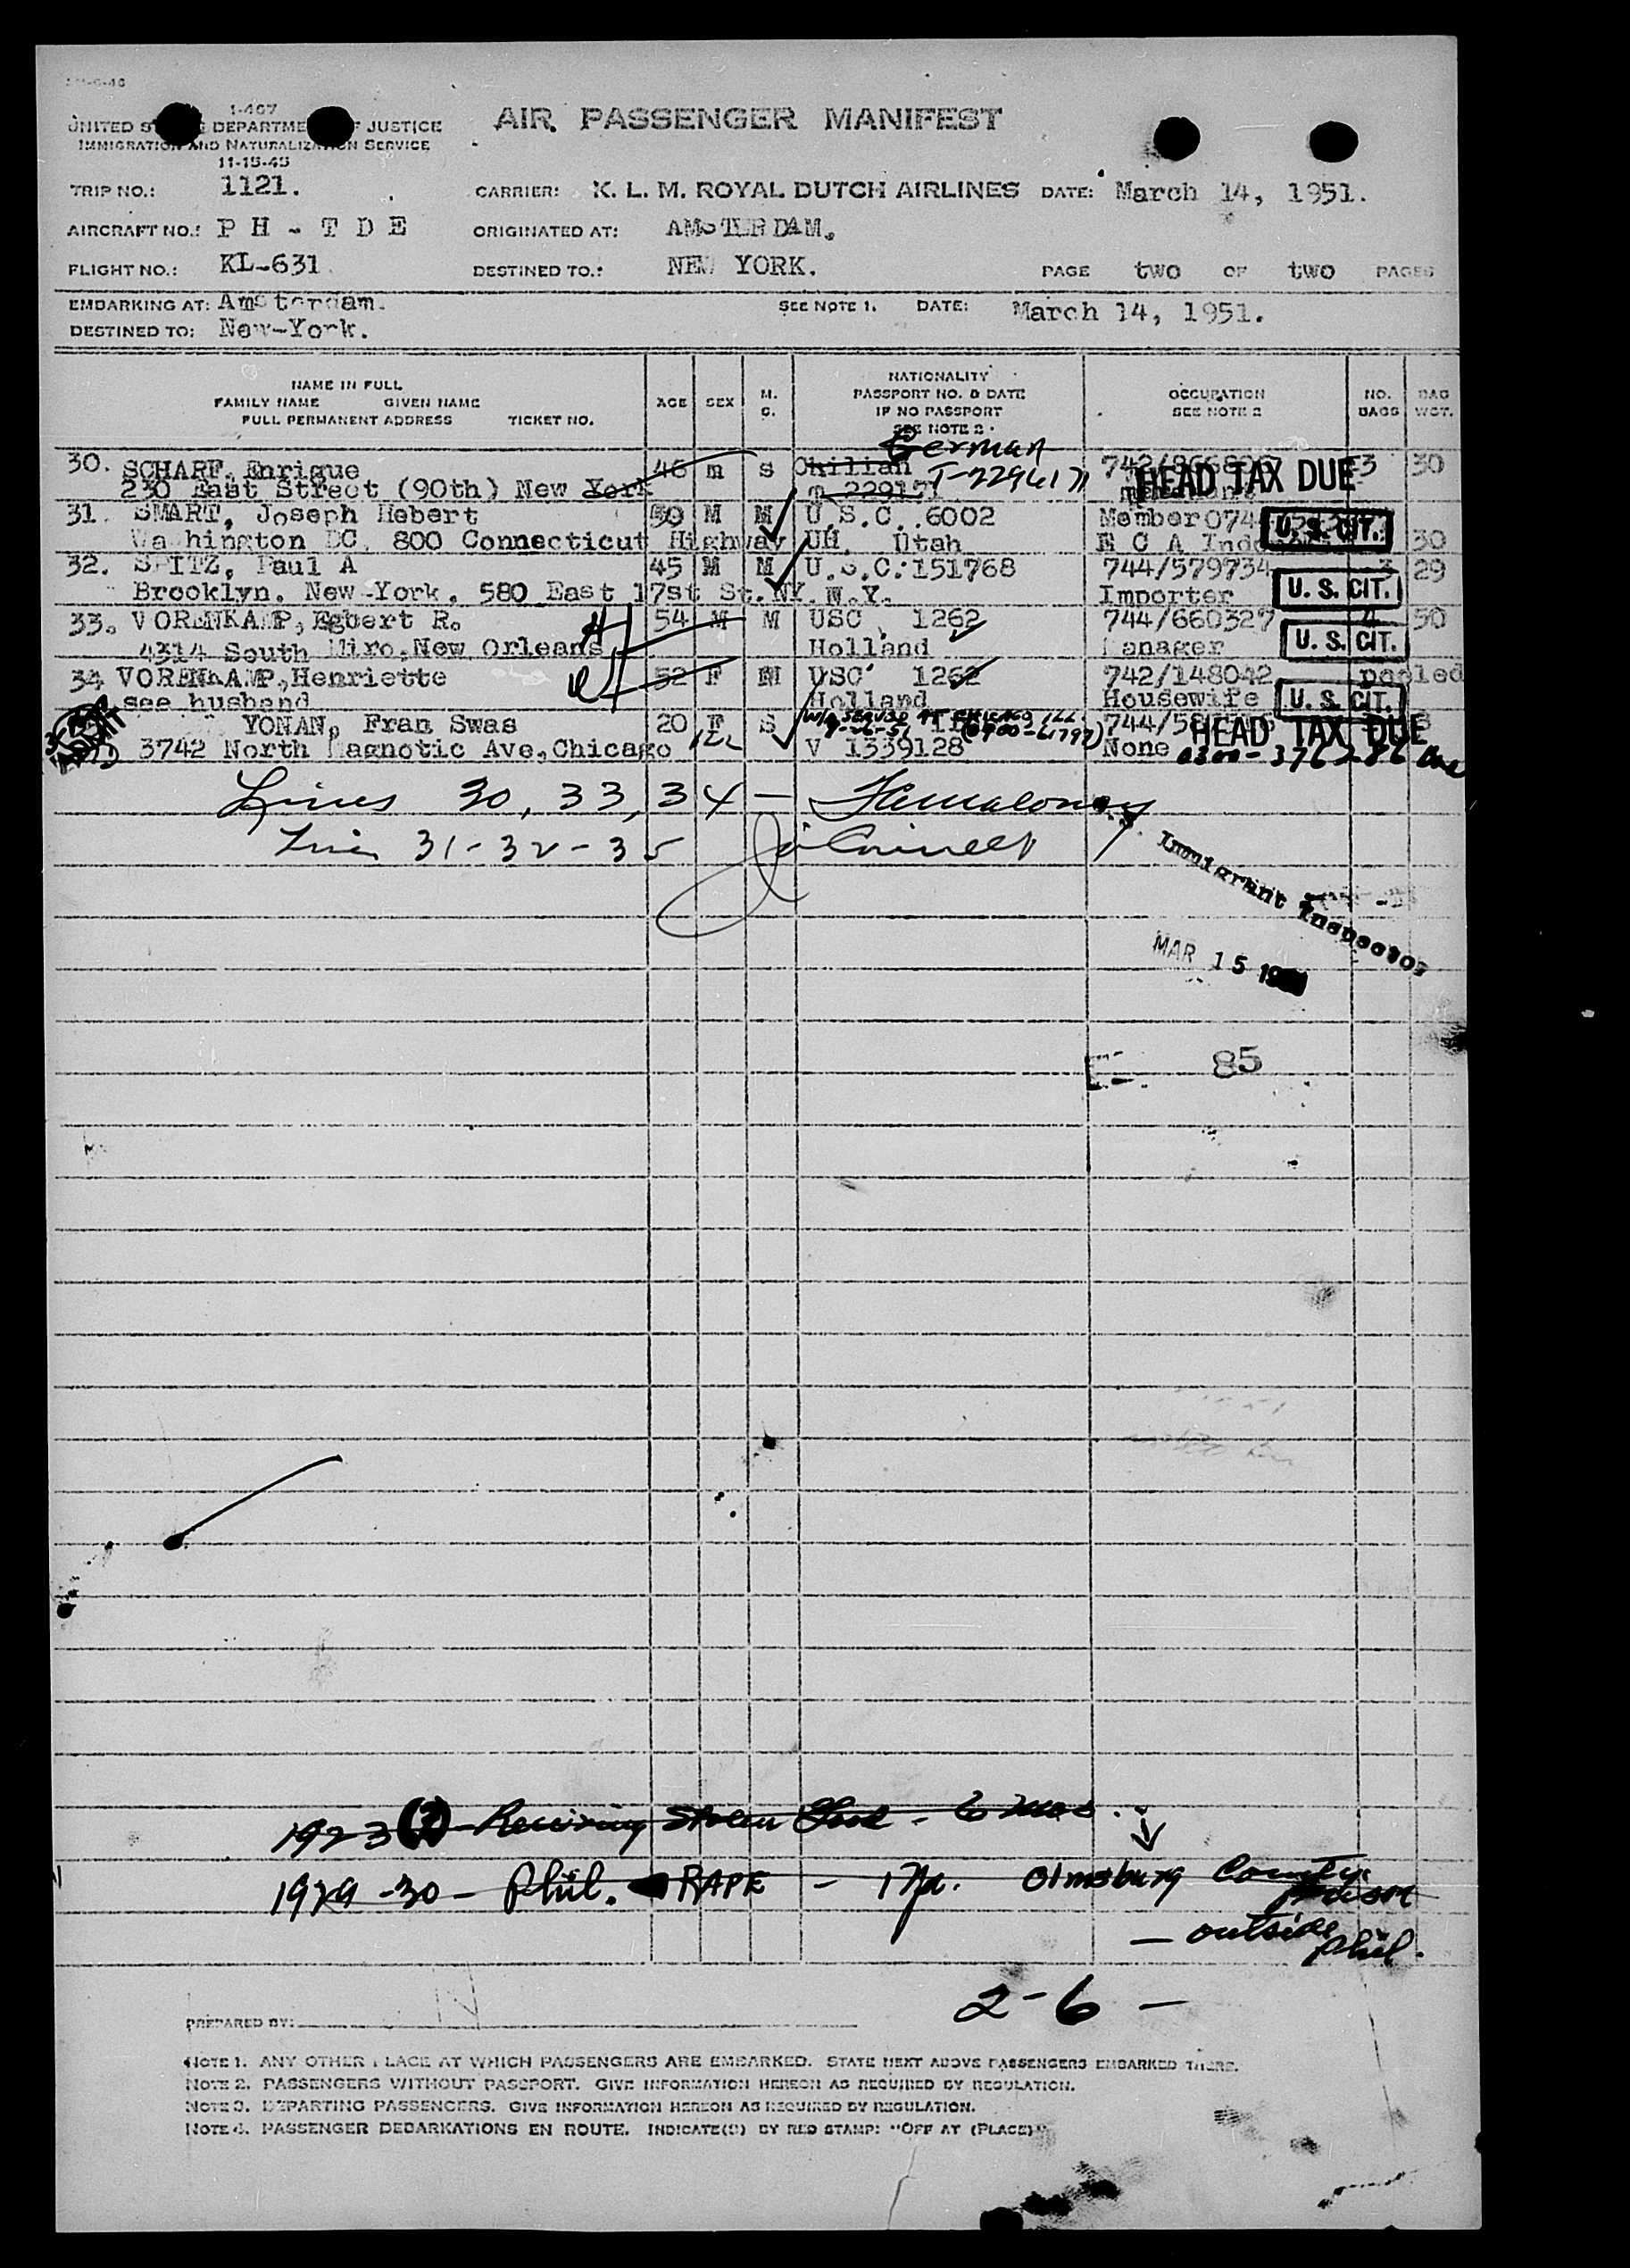 I-467
UNITED STATES DEPARTMENT OF JUSTICE
IMMIGRATION AND NATURALIZATION SERVICE
11-15-45
AIR PASSENGER MANIFEST
TRIP NO.: 1121. CARRIER: K. L. M. ROYAL DUTCH AIRLINES DATE: March 14, 1951.
AIRCRAFT NO.: P H - T D E ORIGINATED AT: AMSTERDAM.
FLIGHT NO.: KL-631 DESTINED TO.: NEW YORK. PAGE two OF two PAGES
EMBARKING AT: Amsterdam. SEE NOTE 1. DATE: March 14, 1951.
DESTINED TO: New-York.
NAME IN FULL
FAMILY NAME GIVEN NAME
FULL PERMANENT ADDRESS TICKET NO.
AGE SEX M. C.
NATIONALITY
PASSPORT NO. & DATE
IF NO PASSPORT
SEE NOTE 2.
OCCUPATION
SEE NOTE 2
NO. BAGS
BAG WGT.
German
30. SCHARF, Enrique 46 m s Chilian T-2296171 HEAD TAX DUE 3 30
230 East Street (90th) New York
31. SMART, Joseph Hebert 50 M M U.S.C. 6002 Member U. S. CIT.
Washington DC, 800 Connecticut Highway UH. Utah E C A 30
32. SPITZ, Paul A 45 M M U.S.C. 151768 744/579734 3 29
Brooklyn. New-York. 580 East 17st St. NY. N.Y. Importer U. S. CIT.
33. VORENKAMP, Egbert R. 54 M M USC 1262 744/660327 4 50
4314 South Miro, New Orleans Holland Manager U. S. CIT.
34 VORENKAMP, Henriette 52 F M USC 1262 742/148042 pooled
see husband Holland Housewife U. S. CIT.
YONAN, Fran Swas 20 F S HEAD TAX DUE
3742 North Magnotic Ave, Chicago ILL V 1339128 None 0300-
Lines 30, 33, 34 -
Line 31-32-35
Immigrant Inspector
MAR 15 19
85
1923 (2) - Receiving Stolen Good - 6 mos.
1929-30 - Phil. RAPE - 1 yr. Olmsburg County Prison
- outside Phil.
2-6 -
PREPARED BY:
NOTE 1. ANY OTHER PLACE AT WHICH PASSENGERS ARE EMBARKED. STATE NEXT ABOVE PASSENGERS EMBARKED THERE.
NOTE 2. PASSENGERS WITHOUT PASSPORT. GIVE INFORMATION HEREON AS REQUIRED BY REGULATION.
NOTE 3. DEPARTING PASSENGERS. GIVE INFORMATION HEREON AS REQUIRED BY REGULATION.
NOTE 4. PASSENGER DEBARKATIONS EN ROUTE. INDICATE(D) BY RED STAMP: "OFF AT (PLACE)"